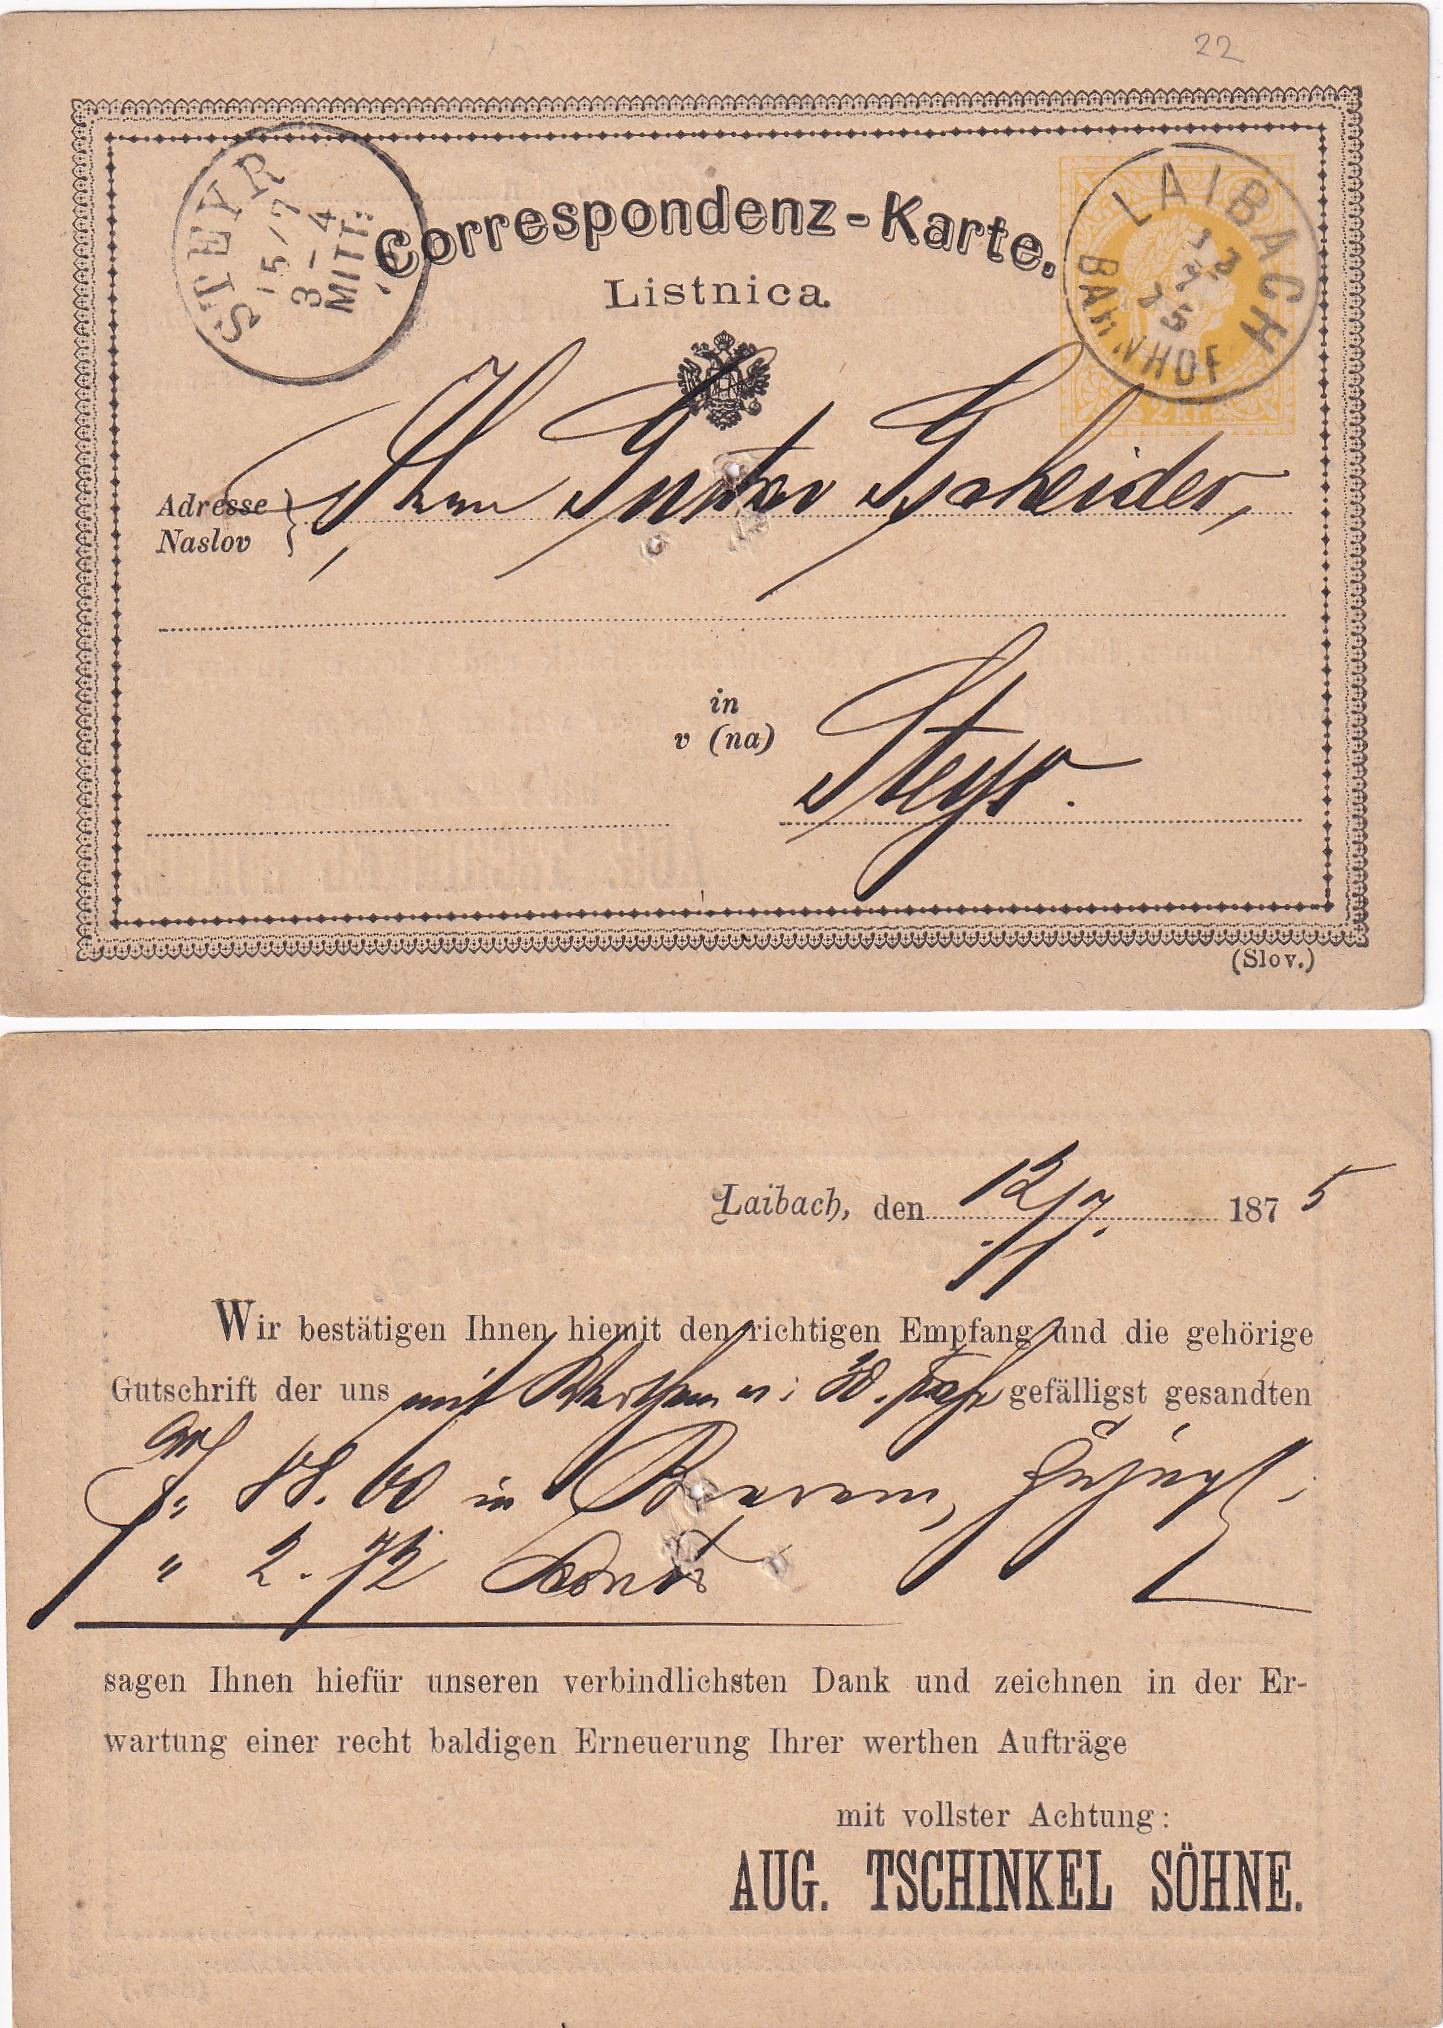 22
STEYR
15/7
3-4
MITT:
Correspondenz-Karte.
Listnica.
LAIBACH
13
7
75
BAHNHOF
2 Kr.
Adresse
Naslov
Herrn Gscheider,
in
v (na)
Steyr.
(Slov.)
Laibach, den 12/7. 1875
Wir bestätigen Ihnen hiemit den richtigen Empfang und die gehörige
Gutschrift der uns mit Werthem v: gefälligst gesandten
88.60 in Baarem,
" 2.72 Sconto
sagen Ihnen hiefür unseren verbindlichsten Dank und zeichnen in der Er-
wartung einer recht baldigen Erneuerung Ihrer werthen Aufträge
mit vollster Achtung:
AUG. TSCHINKEL SÖHNE.